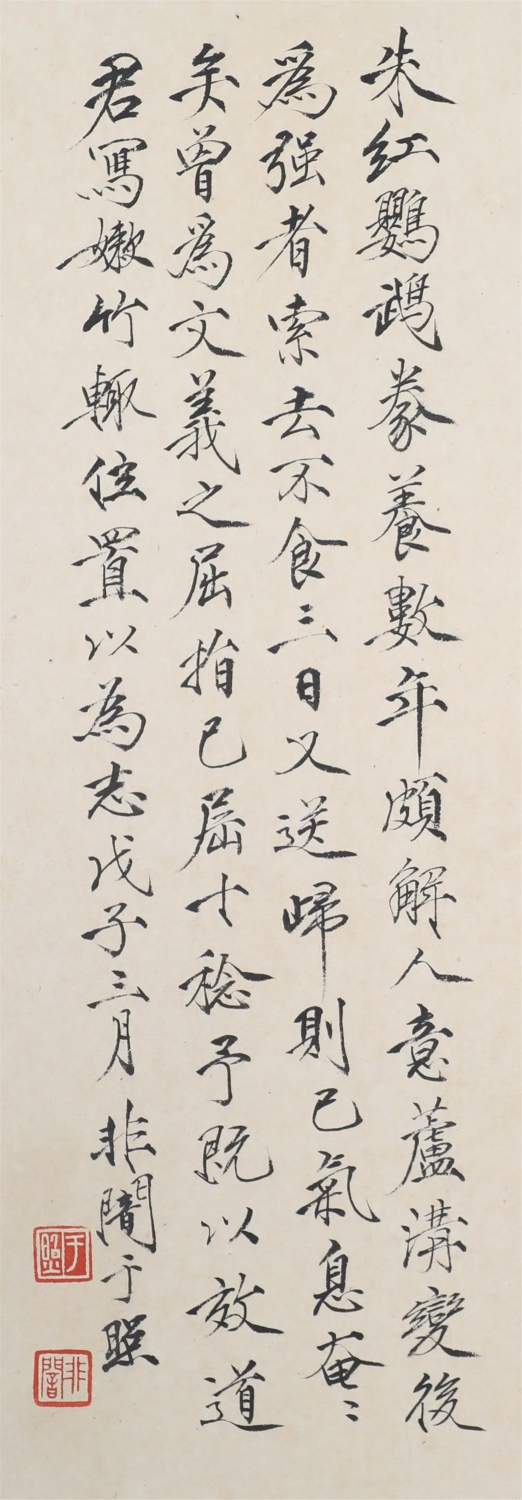 朱紅鸚鵡豢養數年頗解人意蘆溝變後
為强者索去不食三日又送歸則已氣息奄〻
矣曾為文義之屈指已屆十稔予既以效道
君寫嫩竹輒位置以為志戊子三月非闇于照
于照
非闇